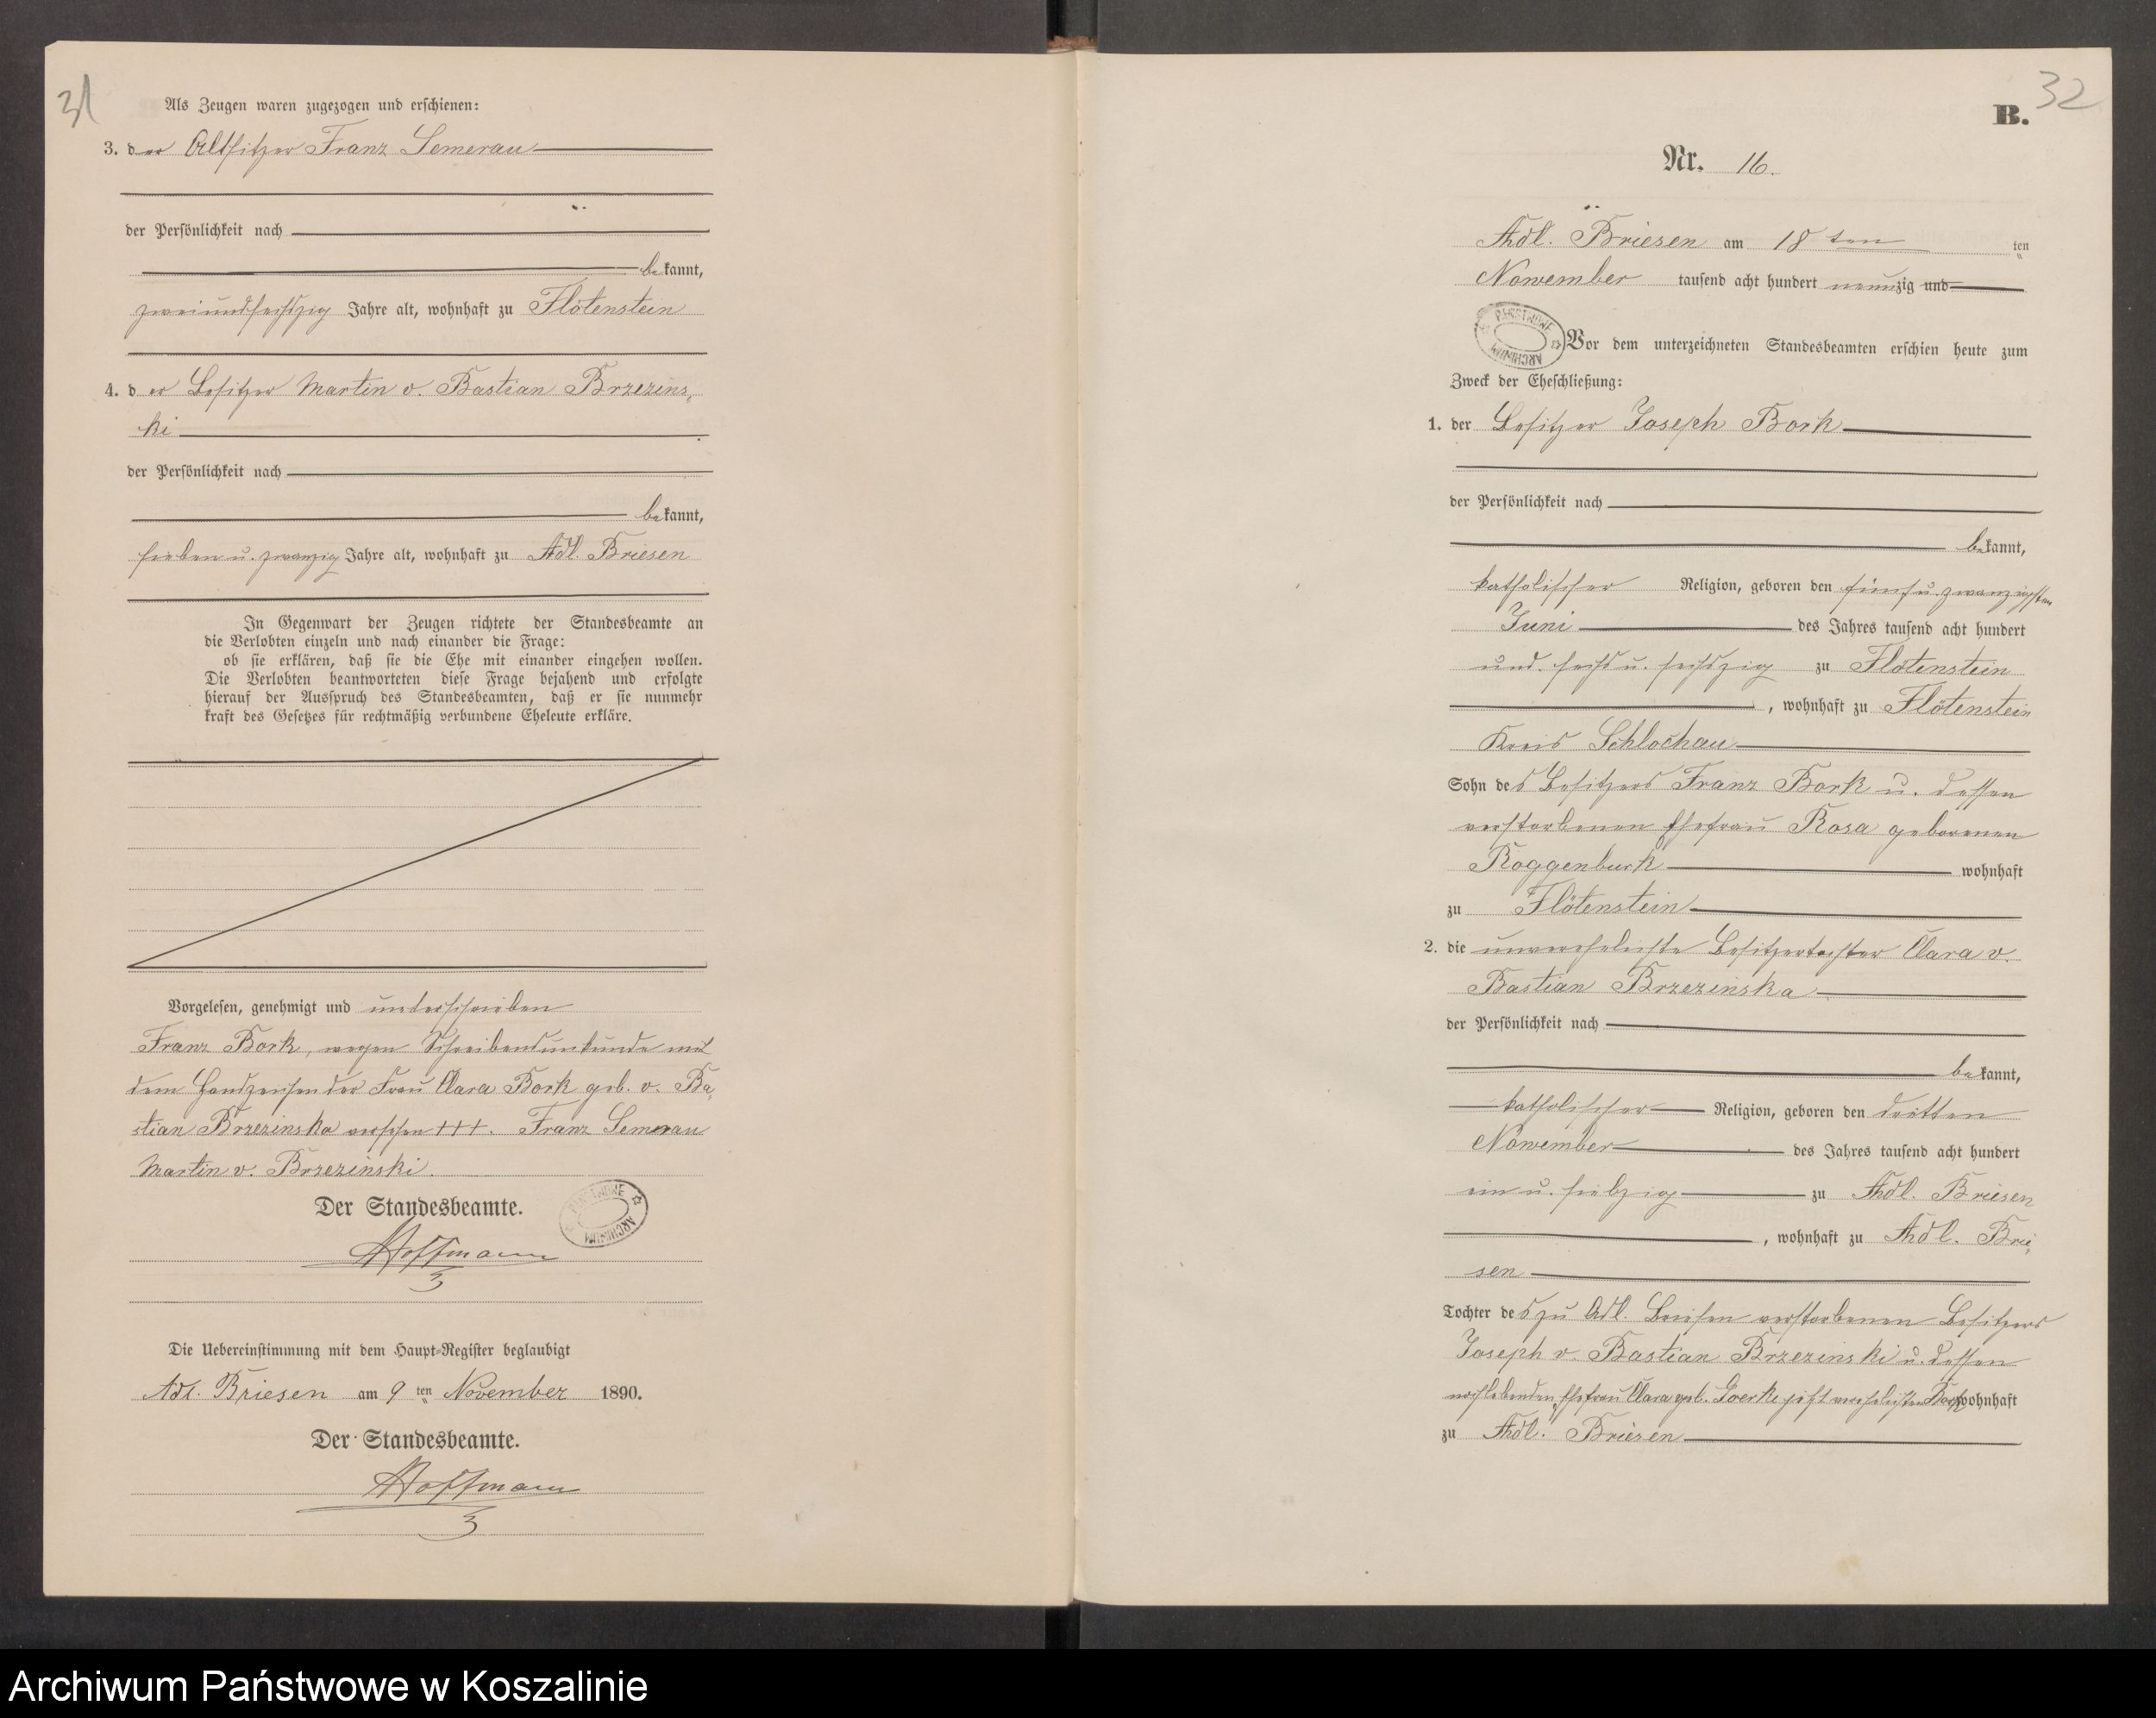 31
Als Zeugen waren zugezogen und erschienen:
3. der Altsitzer Franz Semerau
der Persönlichkeit nach
bekannt,
zweiundsechszig Jahre alt, wohnhaft zu Flötenstein
4. der Besitzer Martin v. Bastian Brzezins-
ki
der Persönlichkeit nach
bekannt,
sieben u. zwanzig Jahre alt, wohnhaft zu Adl. Briesen
In Gegenwart der Zeugen richtete der Standesbeamte an
die Verlobten einzeln und nach einander die Frage:
ob sie erklären, daß sie die Ehe mit einander eingehen wollen.
Die Verlobten beantworteten diese Frage bejahend und erfolgte
hierauf der Ausspruch des Standesbeamten, daß er sie nunmehr
kraft des Gesetzes für rechtmäßig verbundene Eheleute erkläre.
Vorgelesen, genehmigt und unterschrieben
Franz Bork, wegen Schreibensunkunde mit
dem Handzeichen der Frau Clara Bork geb. v. Ba-
stian Brzezinska versehen +++. Franz Semerau
Martin v. Brzezinski.
Der Standesbeamte.
PAŃSTWOWE ARCHIWUM
Hoffmann
Die Uebereinstimmung mit dem Haupt-Register beglaubigt
Adl. Briesen am 9 ten November 1890.
Der Standesbeamte.
Hoffmann
32
B.
Nr. 16.
Adl. Briesen am 18 ten ten
November tausend acht hundert neunzig und
PAŃSTWOWE ARCHIWUM
Vor dem unterzeichneten Standesbeamten erschien heute zum
Zweck der Eheschließung:
1. der Besitzer Joseph Bork
der Persönlichkeit nach
bekannt,
katholischer Religion, geboren den fünfu. zwanzigsten
Juni des Jahres tausend acht hundert
und. sechs u. sechszig zu Flötenstein
, wohnhaft zu Flötenstein
Kreis Schlochau
Sohn des Besitzers Franz Bork u. dessen
verstorbenen Ehefrau Rosa geborenen
Roggenbuck wohnhaft
zu Flötenstein
2. die unverehelichte Besitzertochter Clara v.
Bastian Brzezinska
der Persönlichkeit nach
bekannt,
katholischer Religion, geboren den dritten
November des Jahres tausend acht hundert
ein u. siebzig zu Adl. Briesen
, wohnhaft zu Adl. Brie-
sen
Tochter des zu Adl. Briesen verstorbenen Besitzers
Joseph v. Bastian Brzezinski u. dessen
nochlebenden Ehefrau Clara geb. Goerke jetzt verehelichten Bork wohnhaft
zu Adl. Briesen
Archiwum Państwowe w Koszalinie